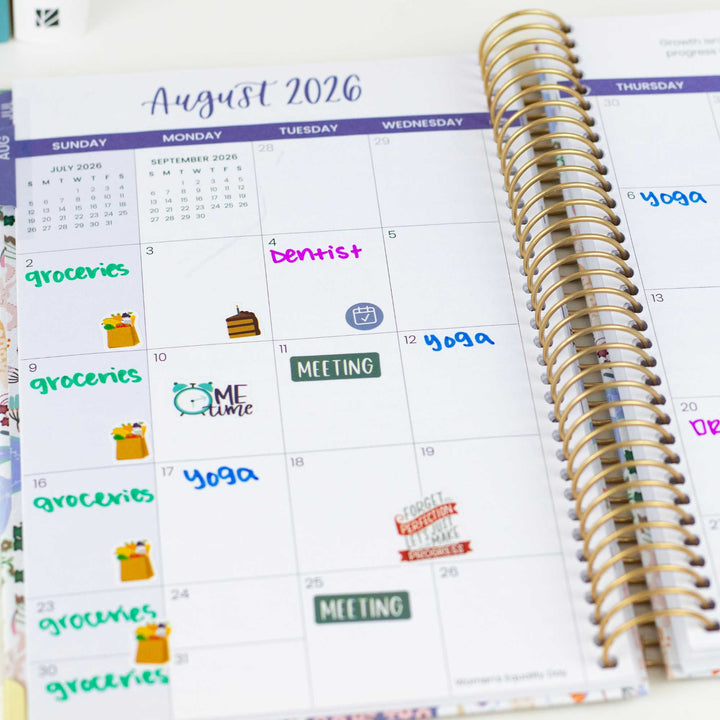 August 2026
SUNDAY MONDAY TUESDAY WEDNESDAY THURSDAY
JULY 2026
S M T W T F S
1 2 3 4
5 6 7 8 9 10 11
12 13 14 15 16 17 18
19 20 21 22 23 24 25
26 27 28 29 30 31
SEPTEMBER 2026
S M T W T F S
1 2 3 4 5
6 7 8 9 10 11 12
13 14 15 16 17 18 19
20 21 22 23 24 25 26
27 28 29 30
28
29
30
2
groceries
3
4
Dentist
5
6
yoga
9
groceries
10
ME
time
11
MEETING
12
yoga
13
16
groceries
17
yoga
18
19
FORGET
PERFECTION
LET'S JUST
MAKE
PROGRESS
20
DR
23
groceries
24
25
MEETING
26
Women's Equality Day
30
groceries
31
AUG
JUL